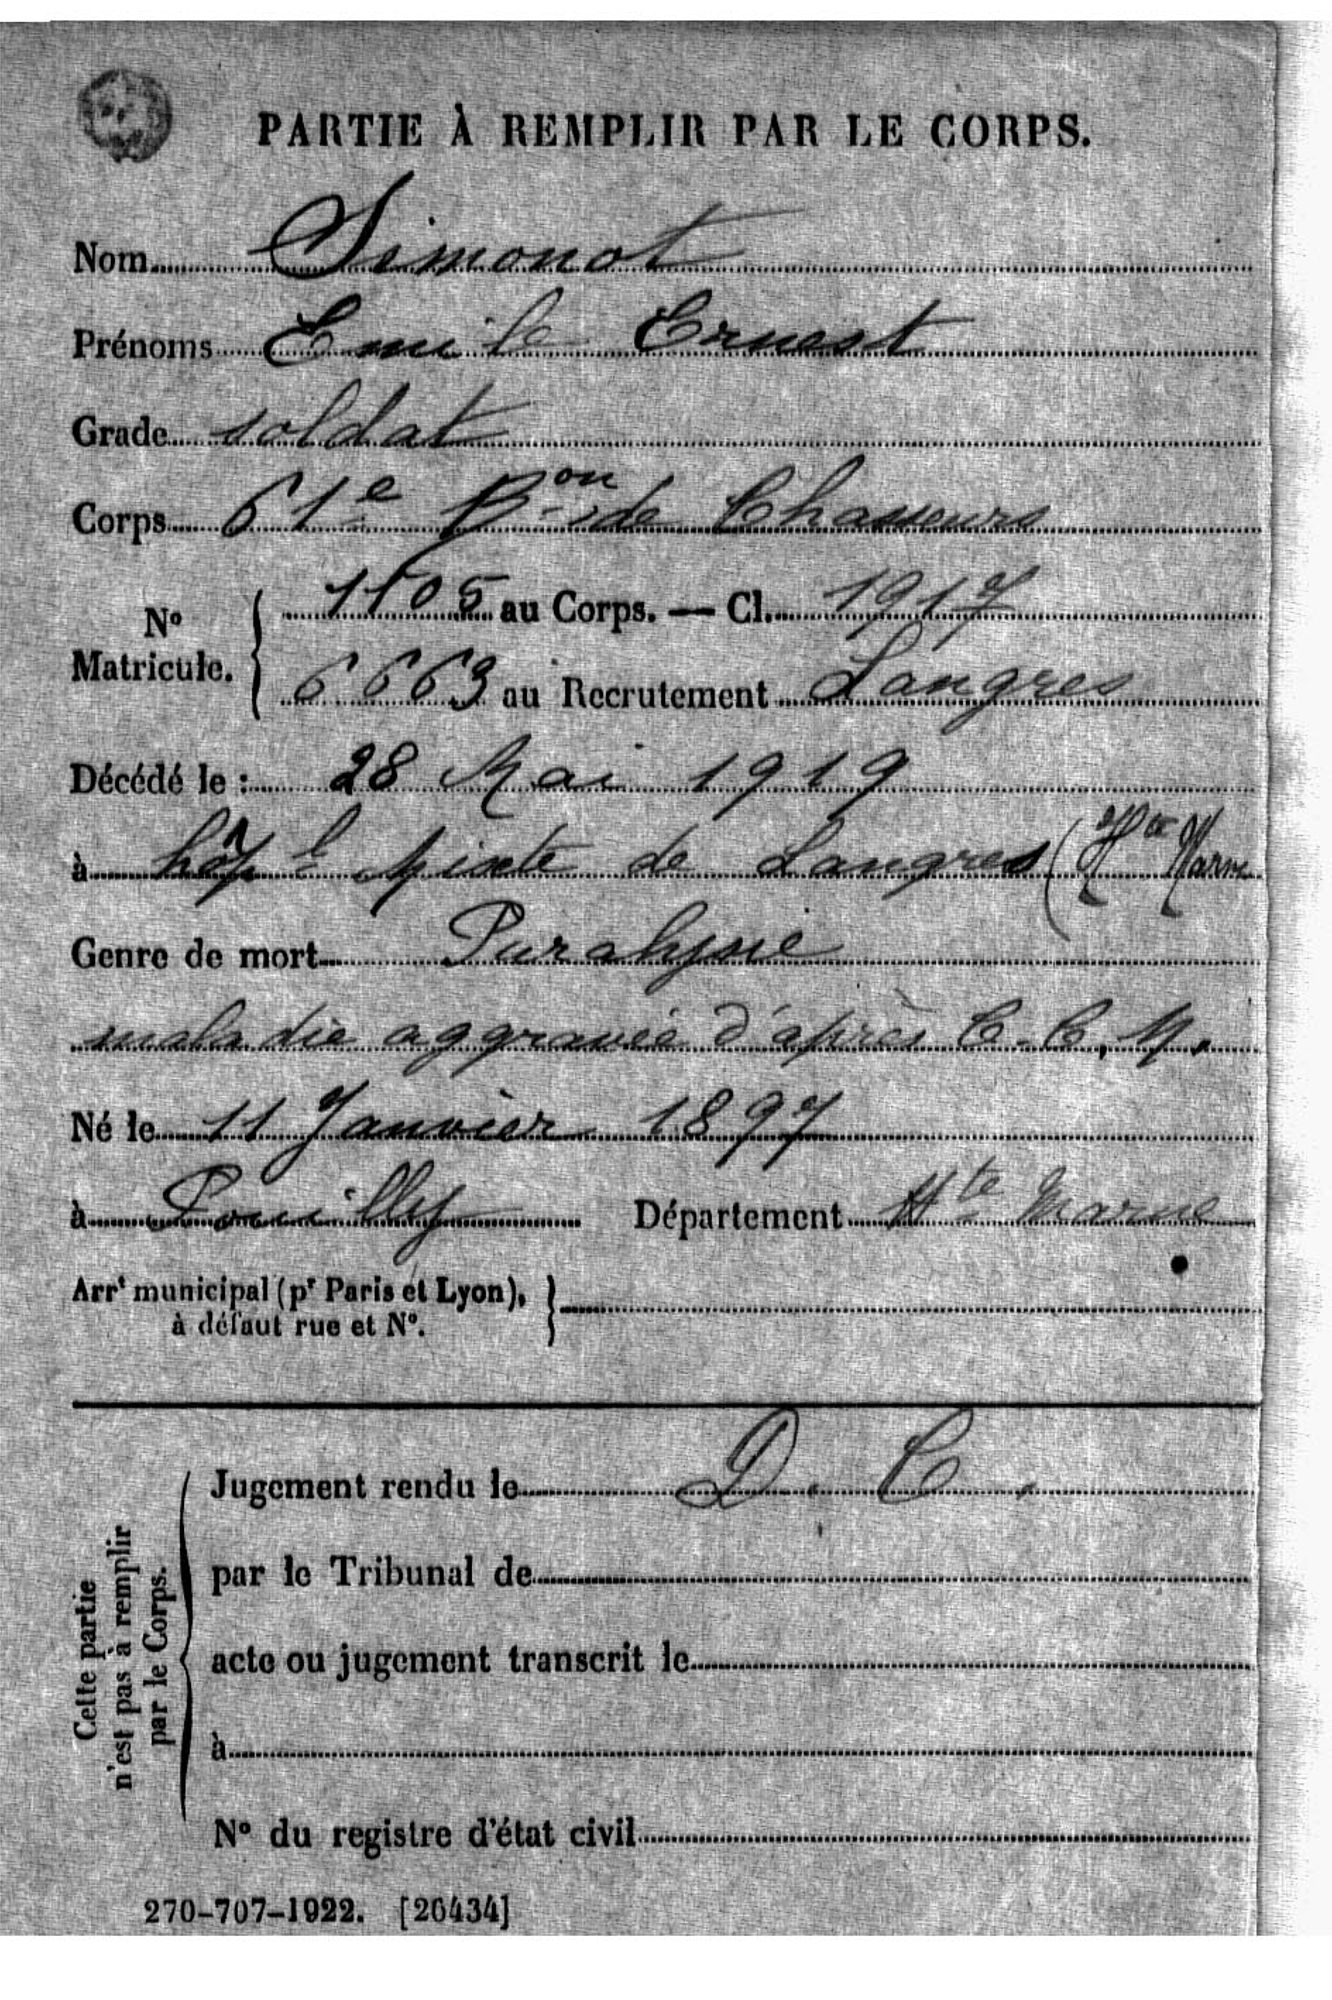 PARTIE À REMPLIR PAR LE CORPS.
Nom Simonot
Prénoms Emile Ernest
Grade soldat
Corps 61e Bon de Chasseurs
No Matricule. { 1105 au Corps. — Cl. 1917
6663 au Recrutement Langres
Décédé le : 28 Mai 1919
à hôpl Mixte de Langres (Hte Marne
Genre de mort Paralysie
maladie aggravée d'après C.C.M.
Né le 11 Janvier 1897
à Pouilly Département Hte Marne
Arrt municipal (pr Paris et Lyon), à défaut rue et No. }
Cette partie n'est pas à remplir par le Corps.
Jugement rendu le D. C.
par le Tribunal de
acte ou jugement transcrit le
à
No du registre d'état civil
270-707-1922. [26434]